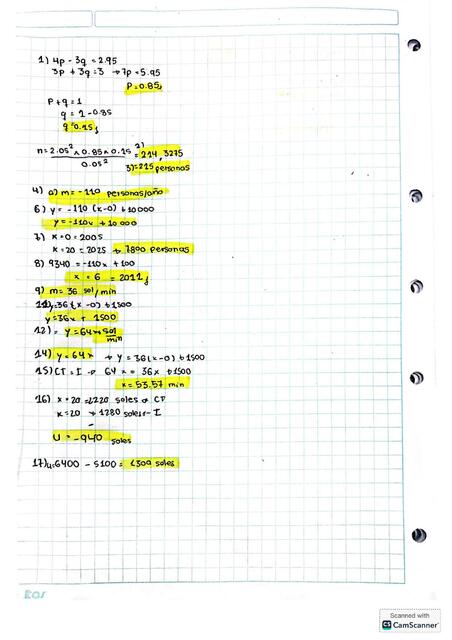 1) 4p - 3q = 2.95
3p + 3q = 3 → 7p = 5.95
P = 0.85
P + q = 1
q = 1 - 0.85
q = 0.15
n = 2.05² x 0.85 x 0.15 = 2) 214,3275
0.05²
3) = 215 personas
4) a) m = -110 personas/año
6) y = -110 (x-0) + 10000
y = -110x + 10 000
7) x = 0 = 2005
x = 20 = 2025 → 7800 personas
8) 9340 = -110x + 100
x = 6 = 2011
9) m = 36 sol/min
11) y = 36 (x - 0) + 1500
y = 36x + 1500
12) = y = 64x sol/min
14) y = 64x → y = 36(x-0) + 1500
15) CT = I → 64x = 36x + 1500
x = 53.57 min
16) x = 20 = 2220 soles → CT
x = 20 → 1280 soles - I
U = -940 soles
17) u = 6400 - 5100 = 1300 soles
Scanned with
CS CamScanner